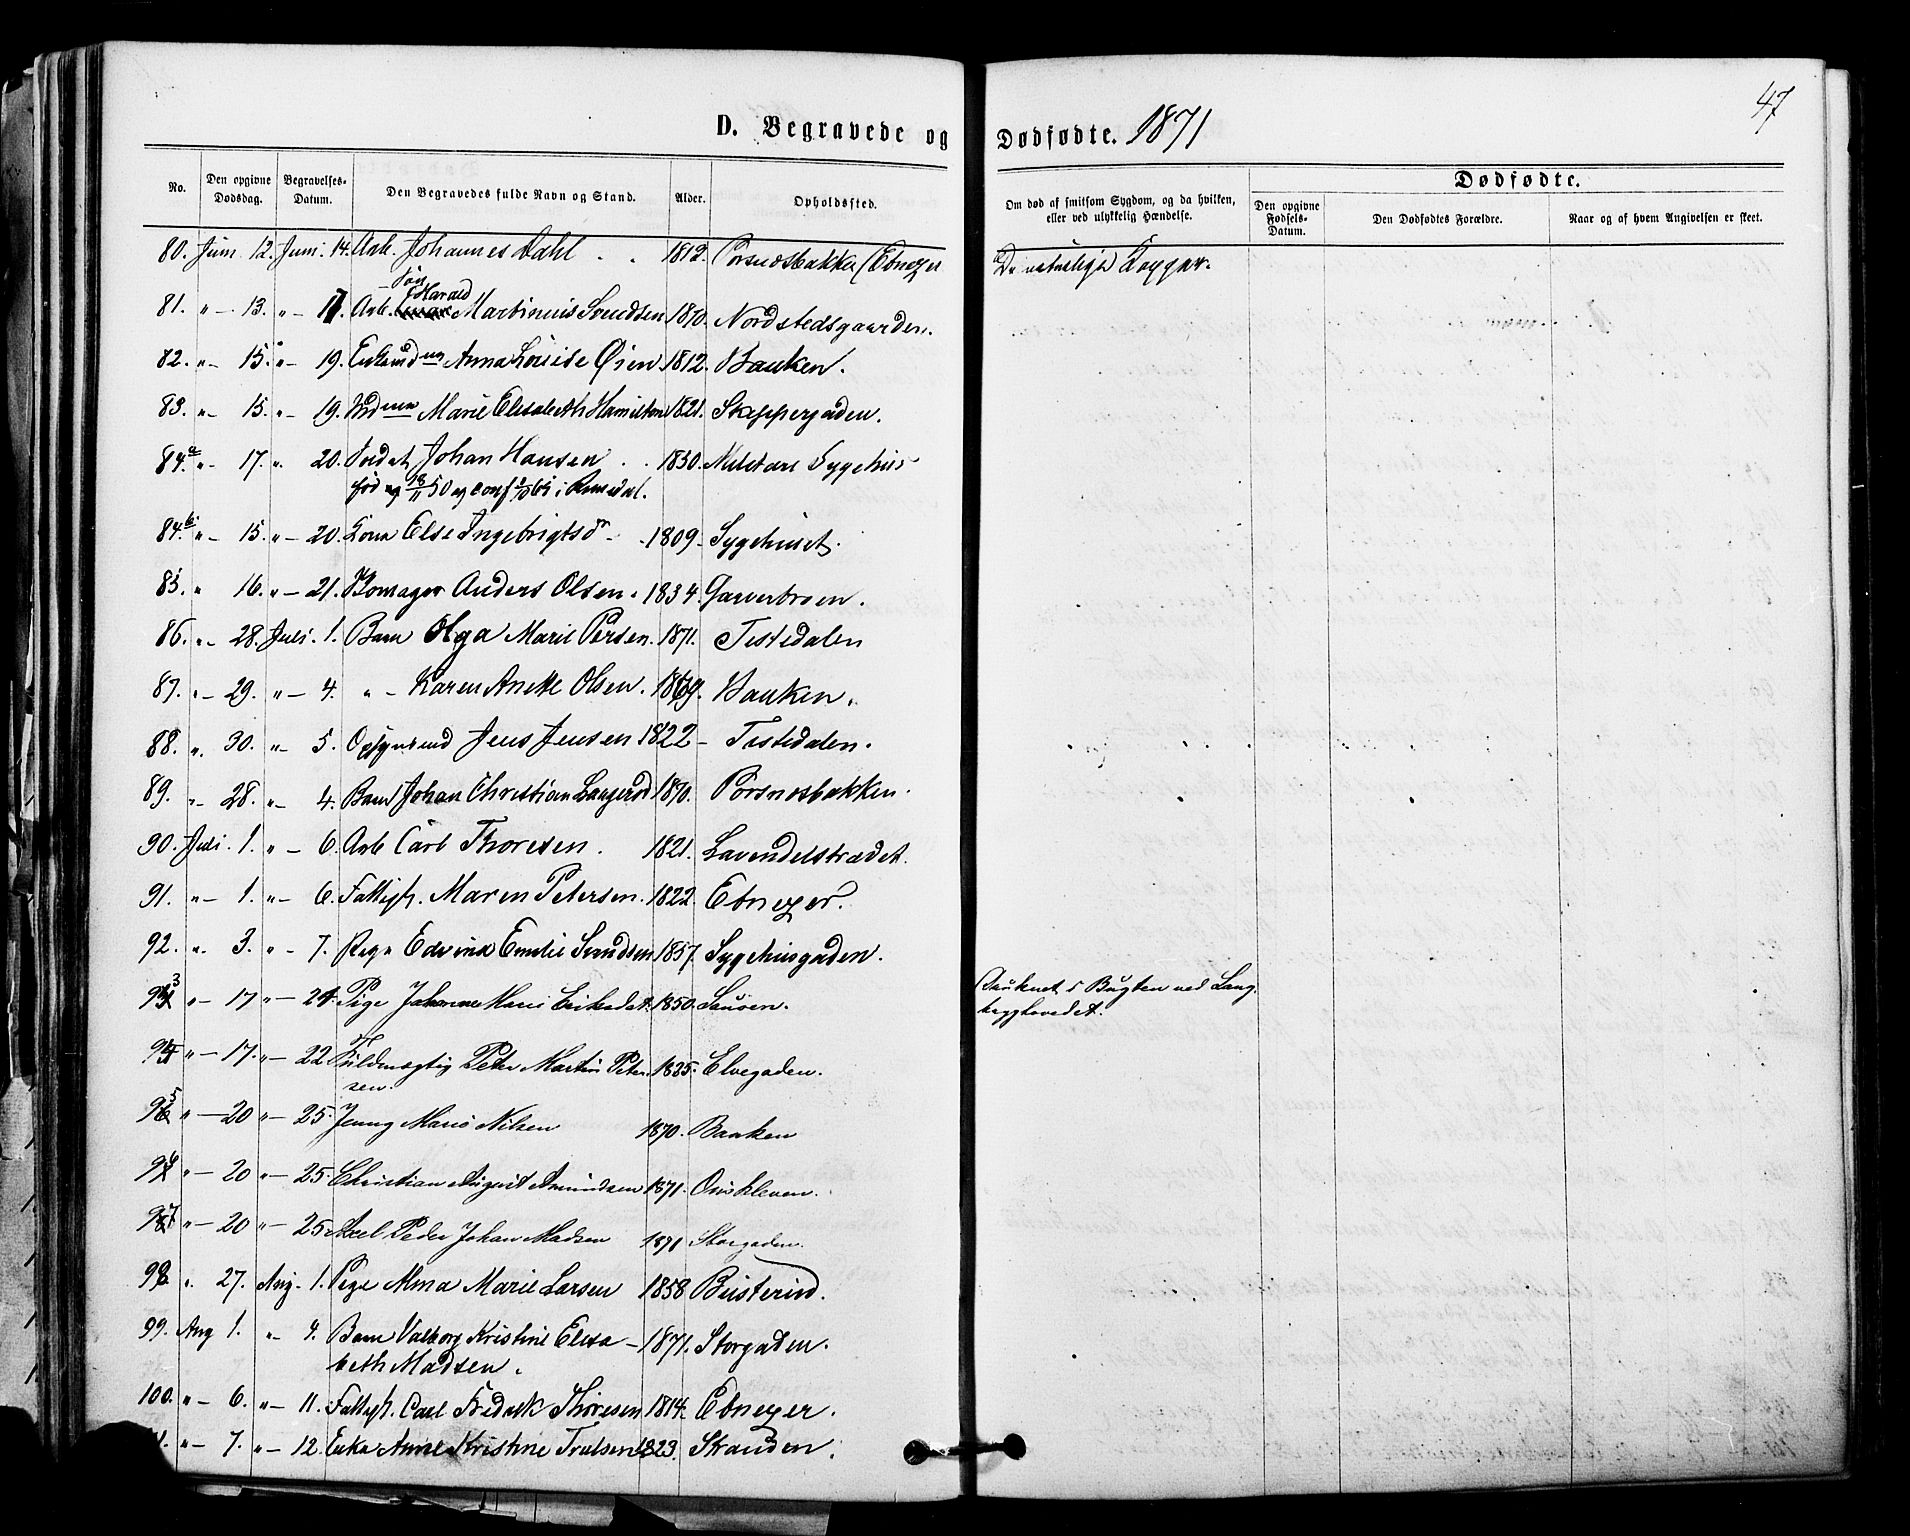 47
D. Begravede og Dødfødte. 1871
No. Den opgivne Dødsdag. Begravelses-Datum. Den Begravedes fulde Navn og Stand. Alder. Opholdssted. Om død af smitsom Sygdom, og da hvilken, eller ved ulykkelig Hændelse.
Dødfødte.
Den opgivne Fødsels-Datum. Den Dødfødtes Forældre. Naar og af hvem Angivelsen er skeet.
80. Juni 12. Juni. 14. Arb. Johannes Dahl . . 1812. Porsnæsbakken (Ebnezer
Søn
Harald
81. " - 13. " - 17. Arb. Martinius Svendsen 1870. Nordstedsgaarden.
82. " - 15. " - 19. Anna Louise Øien 1812. Banken.
83. " - 15. " - 19. Marie Elisabeth Hamilton 1821. Skippergaden.
84.a " - 17. " 20. Soldat Johan Hansen . . 1850. Militære Sygehus
84.b " - 15. " - 20. Kona Else Ingebrigtsdr - 1809 - Sygehuset.
85. " 16. " - 21. Skomager Anders Olsen. 1834. Garverbroen.
86. " - 28. Juli. 1. Barn Olga Marie Persen. 1871. Tistedalen
87. " - 29. " - 4. " - Karen Anette Olsen. 1869. Banken.
88. " 30. " - 5. Opsynsmd Jens Jensen 1822 - Tistedalen.
89. " - 28. " - 4. Barn Johan Christian Langerød 1870. Porsnæsbakken.
90. Juli. 1. " - 6. Arb Carl Thoresen. 1821. Lavendelstrædet.
91. " - 1. " - 6. Fattigh. Maren Petersen. 1822. Ebnezer.
92. " 3. " - 7. Pige Edvinda Emilie Svendsen 1857. Sygehusgaden.
93 " - 17 " - 24. Pige Johanne Marie 1850. Sauøen. Druknet i Bugten ved Lang-
94 " - 17. " - 22. Fuldmægtig Peter Martin Peter- 1835. Elvegaden.
sen.
95 " - 20 " - 25. Jenny Marie Nilsen 1870. Banken
96 " - 20 " - 25. Christian August Amundsen 1871. Oskleven.
97 " - 20 " - 25. Axel Peder Johan Madsen 1871 Storgaden.
98 " 27. Aug. 1. Pige Alma Marie Larsen 1858 Busterud.
99. Aug 1. " - 4. Barn Valborg Kristine Elisa- 1871. Storgaden.
beth Madsen.
100. " - 6. " - 11. Fattigh. Carl Fredrik Thoresen 1814. Ebnezer.
" - 7. " - 12. Enke Anne Kristine Trulsen 1823. Stranden.